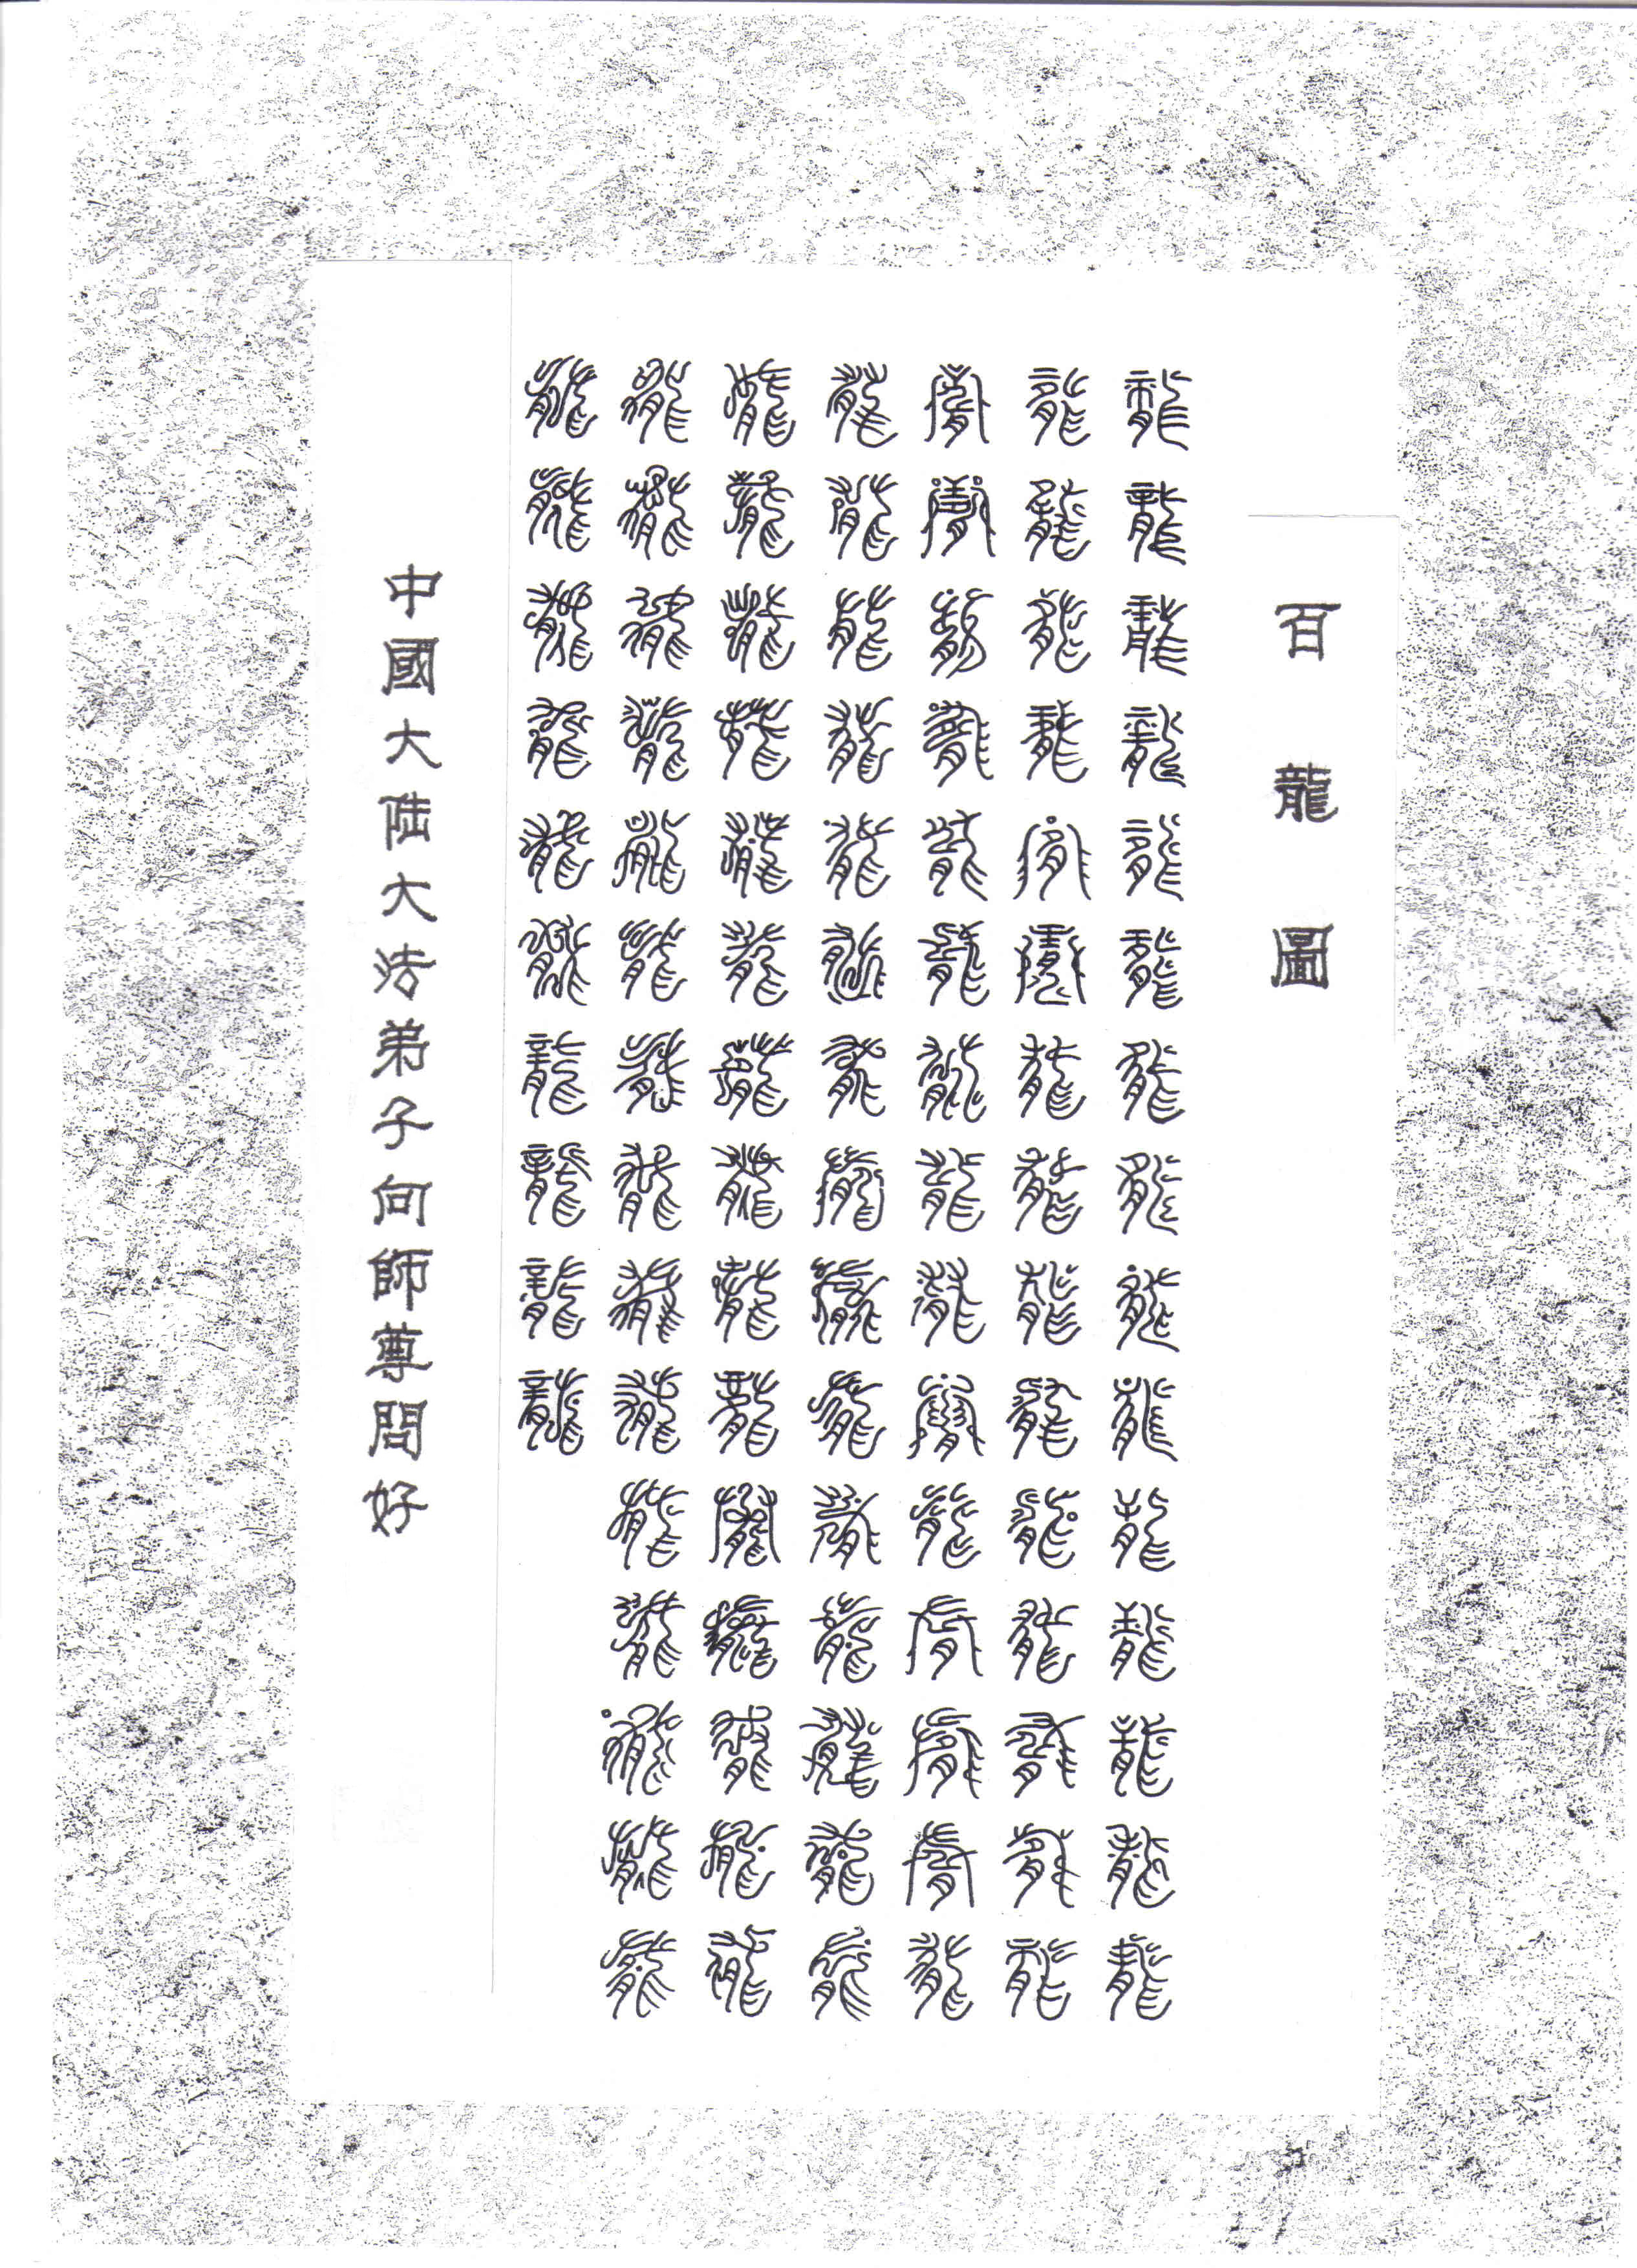 百龍圖
龍龍龍龍龍龍龍龍龍龍龍龍龍龍龍
龍龍龍龍龍龍龍龍龍龍龍龍龍龍龍
龍龍龍龍龍龍龍龍龍龍龍龍龍龍龍
龍龍龍龍龍龍龍龍龍龍龍龍龍龍龍
龍龍龍龍龍龍龍龍龍龍龍龍龍龍龍
龍龍龍龍龍龍龍龍龍龍龍龍龍龍龍
龍龍龍龍龍龍龍龍龍龍
中國大陸大法弟子向師尊問好